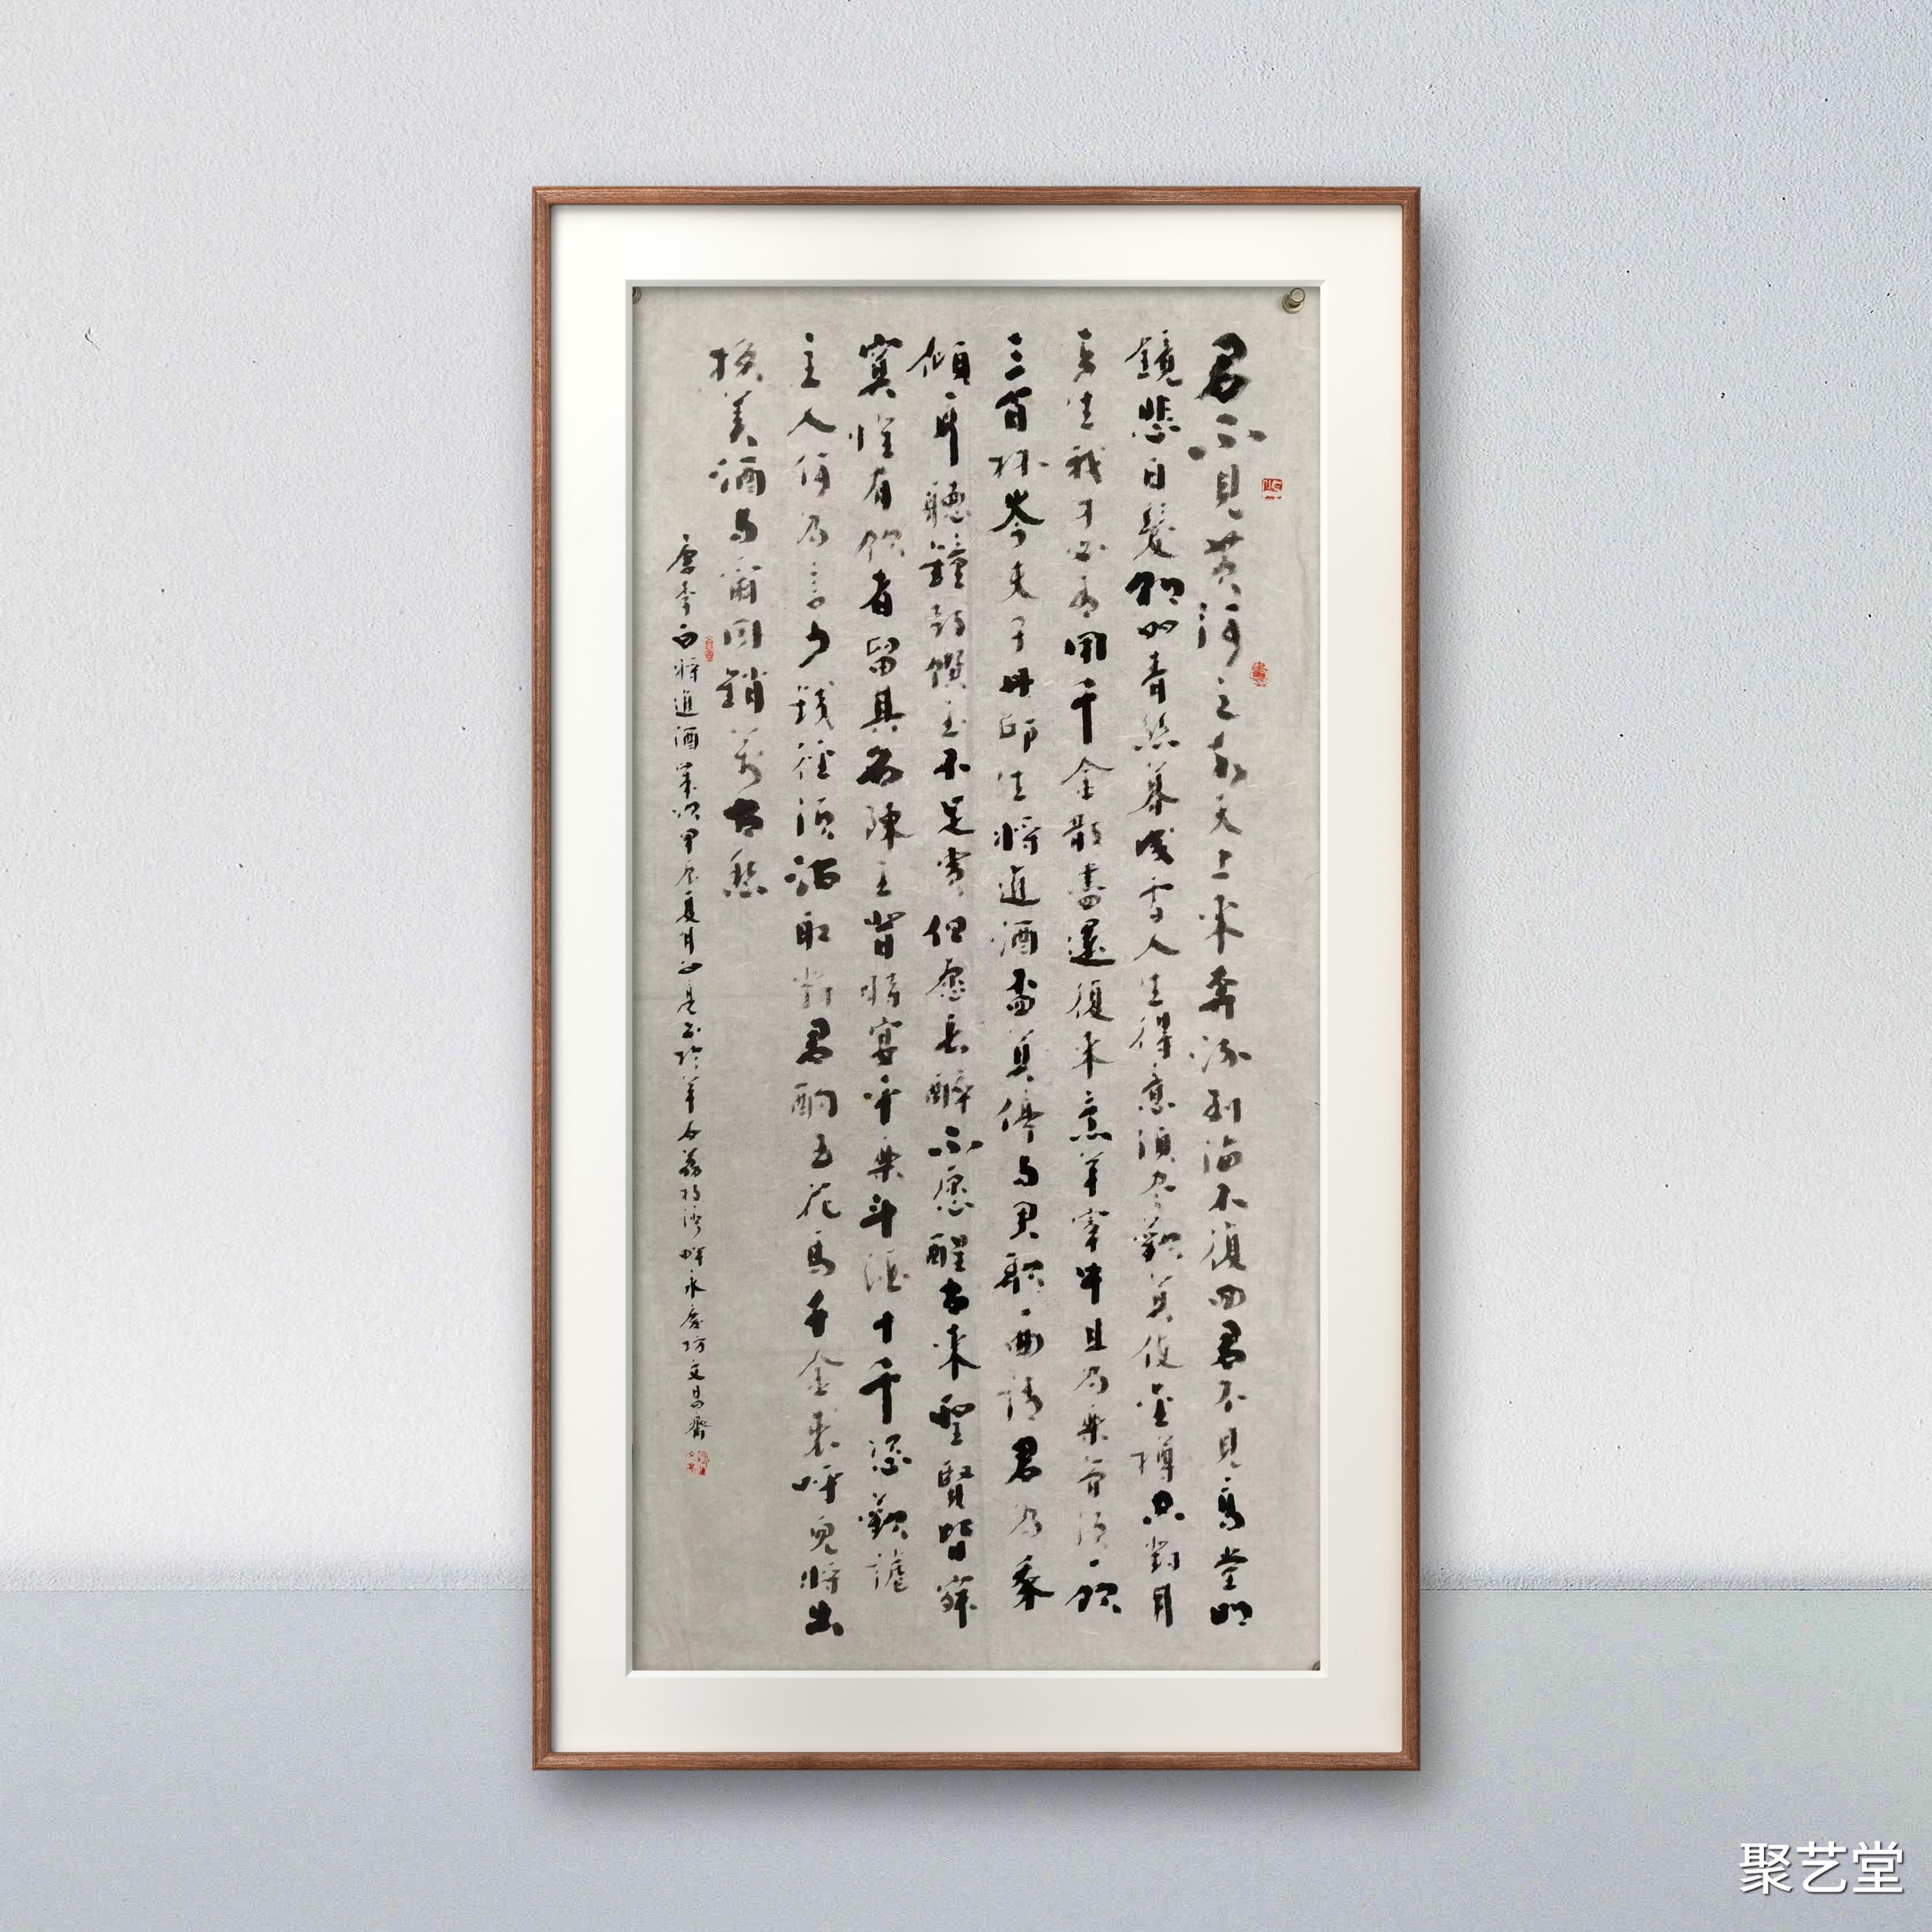 君不見黄河之水天上来奔流到海不復回君不見高堂明
鏡悲白髮朝如青絲暮成雪人生得意須尽歡莫使金樽空對月
天生我才必有用千金散盡還復来烹羊宰牛且為樂會須一飲
三百杯岑夫子丹邱生將進酒盃莫停与君歌一曲請君為我
傾耳聽鐘鼓饌玉不足貴但愿長醉不愿醒古来聖賢皆寂
寞惟有飲者留其名陳王昔時宴平樂斗酒十千恣歡謔
主人何為言少錢徑須沽取對君酌五花馬千金裘呼兒將出
換美酒与爾同銷萬古愁
唐李白將進酒歲次甲辰夏月羊城荔枝湾畔永慶坊文昌齋
聚艺堂